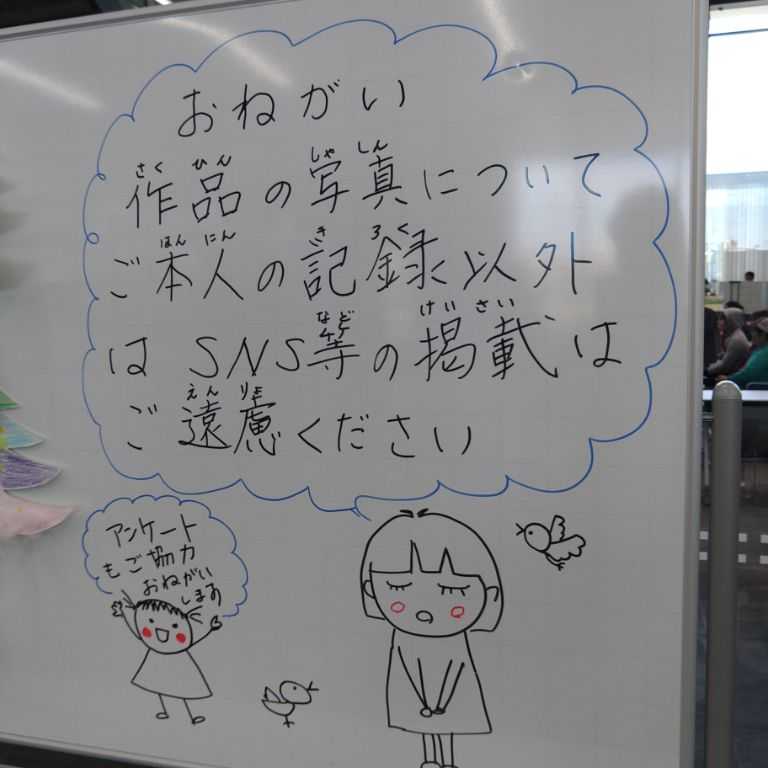 おねがい
作品の写真について
さくひん しゃしん
ご本人の記録以外
ほんにん きろく
はSNS等の掲載は
など けいさい
ご遠慮ください
えんりょ
アンケート
もご協力
おねがい
します